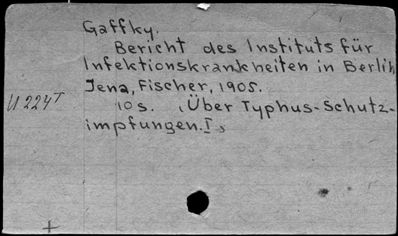 Gaffky.
Bericht des Instituts für
Infektionskrankheiten in Berlin,
Jena, Fischer, 1905.
U 224T
10 s. (Über Typhus-Schutz-
impfungen. I)